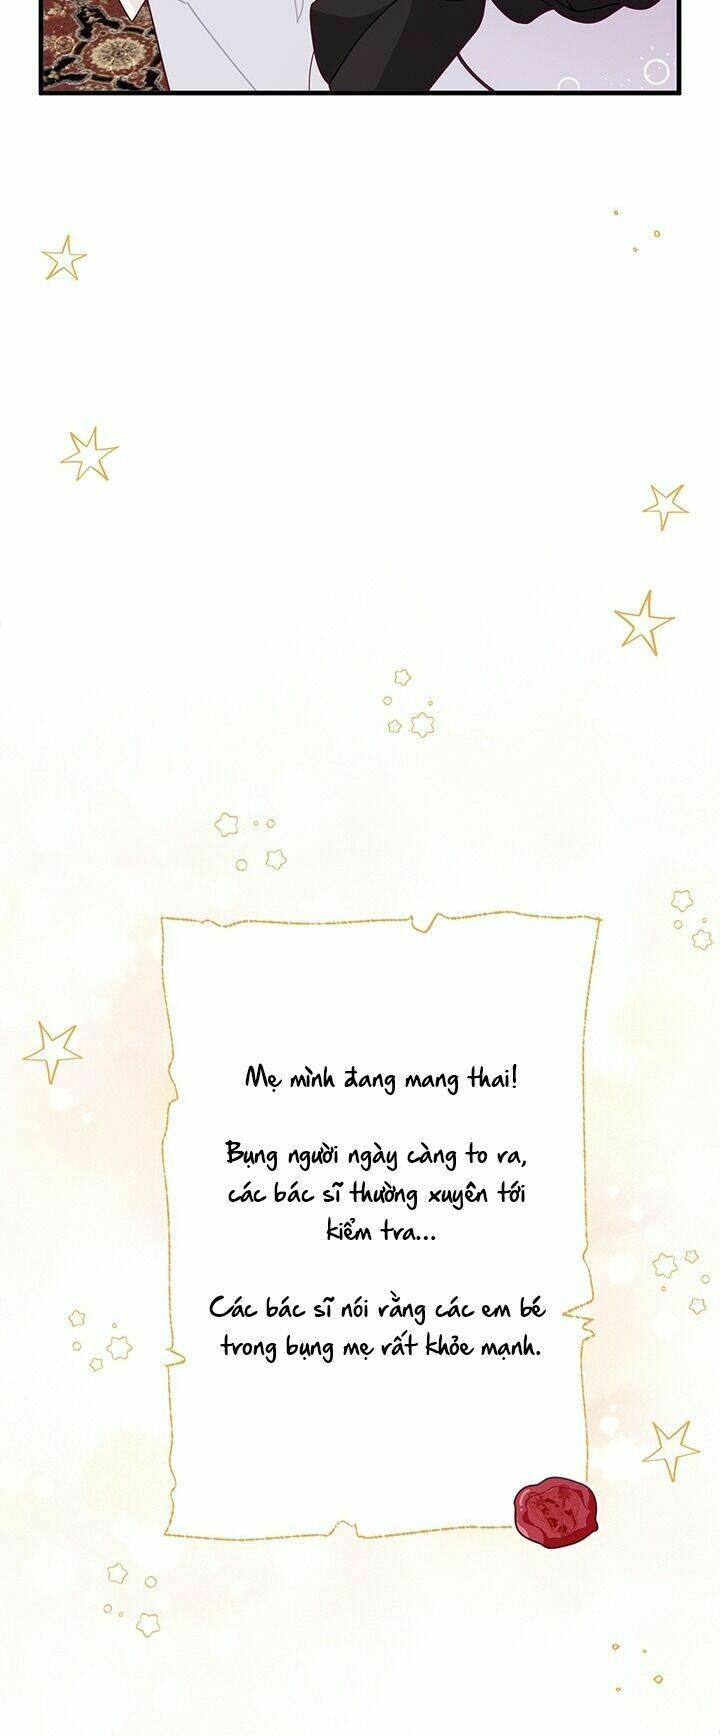 Mẹ mình đang mang thai!
Bụng người ngày càng to ra,
các bác sĩ thường xuyên tới
kiểm tra...
Các bác sĩ nói rằng các em bé
trong bụng mẹ rất khỏe mạnh.